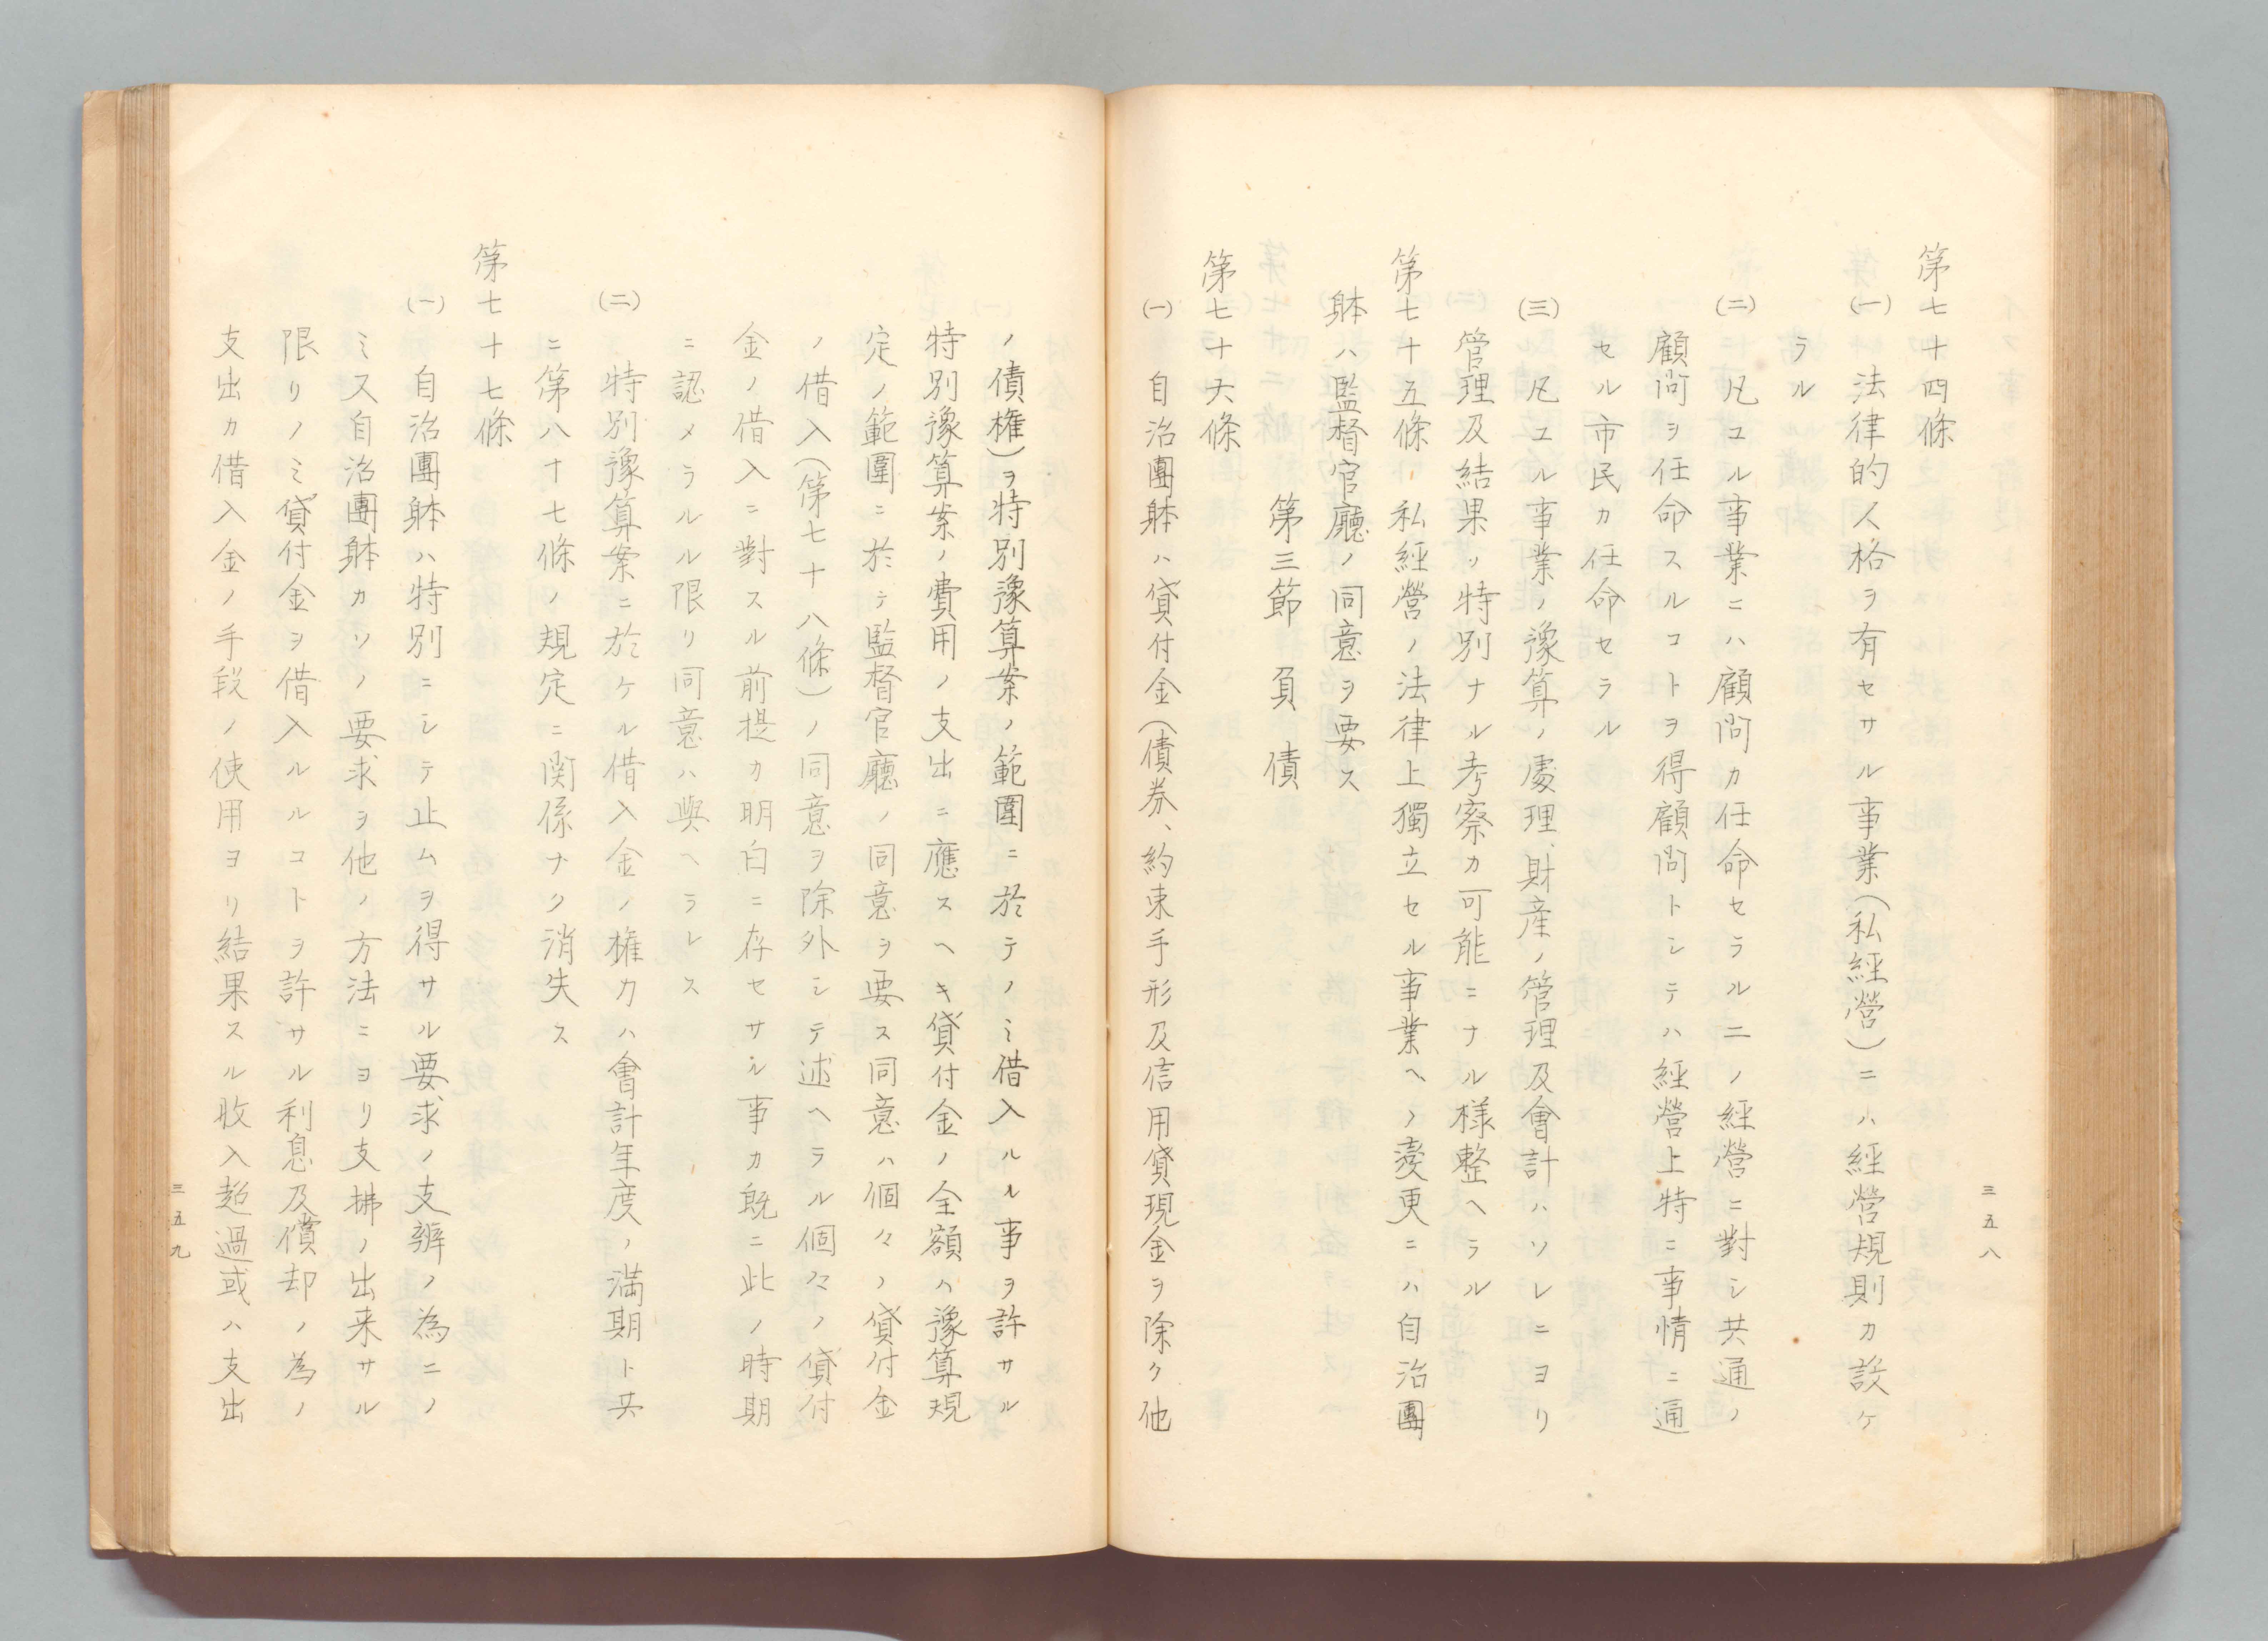 第七十四條
(一) 法律的人格ヲ有セサル事業(私經營)ニハ經營規則カ設ケ
ラル
(二) 凡ユル事業ニハ顧問カ任命セラル二ノ經營ニ對シ共通ノ
顧問ヲ任命スルコトヲ得顧問トシテハ經營上特ニ事情ニ通
セル市民カ任命セラル
(三) 凡ユル事業ノ豫算ノ處理、財産ノ管理及會計ハソレニヨリ
管理及結果ノ特別ナル考察カ可能ニナル様整ヘラル
第七十五條 私經營ノ法律上獨立セル事業ヘノ変更ニハ自治團
躰ハ監督官廳ノ同意ヲ要ス
第三節 負債
第七十六條
(一) 自治團躰ハ貸付金(債券、約束手形及信用貸現金ヲ除ク他
三五八
ノ債権)ヲ特別豫算案ノ範圍ニ於テノミ借入ルル事ヲ許サル
特別豫算案ノ費用ノ支出ニ應スヘキ貸付金ノ全額ハ豫算規
定ノ範圍ニ於テ監督官廳ノ同意ヲ要ス同意ハ個々ノ貸付金
ノ借入(第七十八條)ノ同意ヲ除外シテ述ヘラル個々ノ貸付
金ノ借入ニ對スル前提カ明白ニ存セサル事カ既ニ此ノ時期
ニ認メラルル限リ同意ハ與ヘラレス
(二) 特別豫算案ニ於ケル借入金ノ権カハ會計年度ノ満期ト共
ニ第八十七條ノ規定ニ関係ナク消失ス
第七十七條
(一) 自治團躰ハ特別ニシテ止ムヲ得サル要求ノ支辨ノ為ニノ
ミス自治團躰カソノ要求ヲ他ノ方法ニヨリ支拂ノ出来サル
限リノミ貸付金ヲ借入ルルコトヲ許サル利息及償却ノ為ノ
支出カ借入金ノ手段ノ使用ヨリ結果スル收入超過或ハ支出
三五九